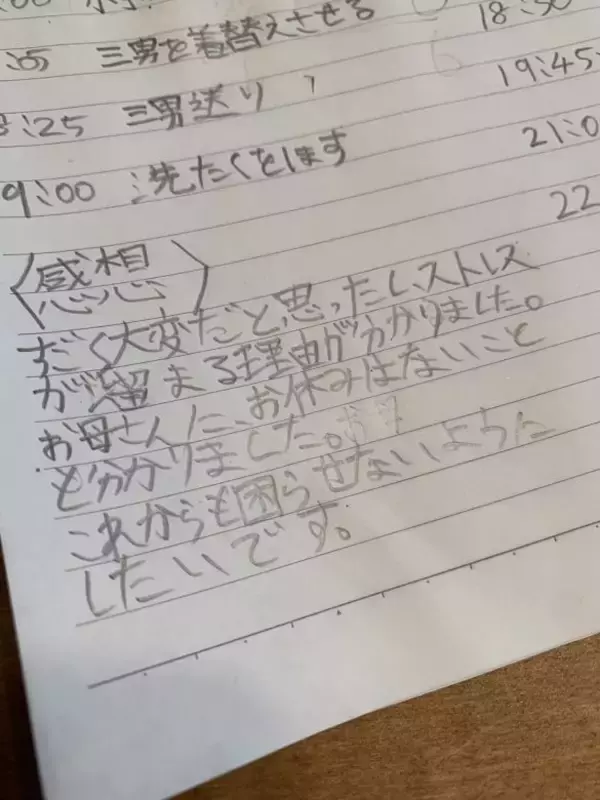 :00
18:30
:05 三男を着替えさせる
19:45
8:25 三男送り
21:0
9:00 洗たくをします
22
〈感想〉
すごく大変だと思ったし、ストレス
が溜まる理由がわかりました。
お母さんに、お休みはないこと
がわかりました。
これからも困らせないように
したいです。